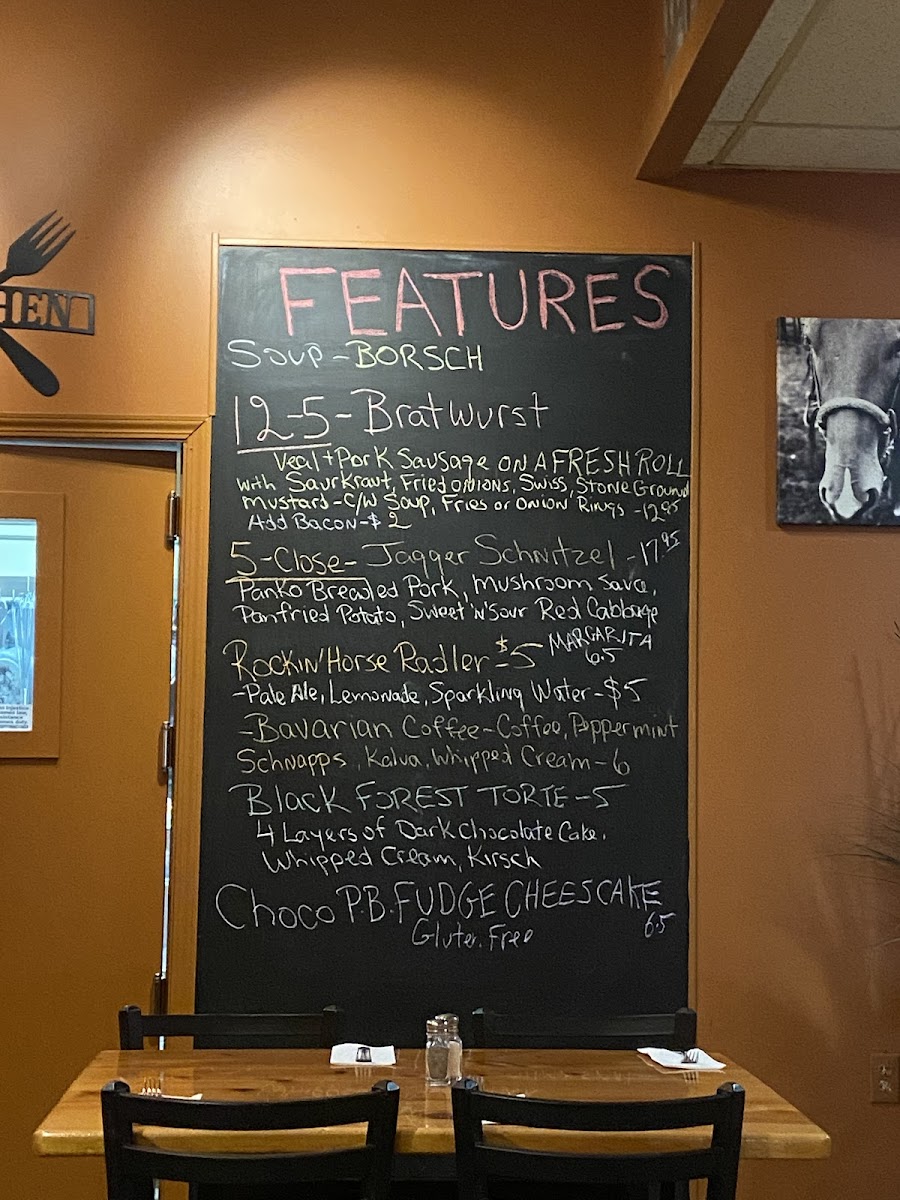 FEATURES
SOUP - BORSCH
12-5 - Bratwurst
Veal + Pork Sausage ON A FRESH ROLL
with Saurkraut, Fried onions, Swiss, Stone Ground
mustard - C/W Soup, Fries or onion Rings - 12.95
Add Bacon - $2
5-Close - Jagger Schnitzel - 17.95
Panko Breaded Pork, Mushroom Sauce,
Panfried Potato, Sweet 'n' Sour Red Cabbage
MARGARITA
6.5
Rockin' Horse Radler - $5
- Pale Ale, Lemonade, Sparkling Water - $5
- Bavarian Coffee - Coffee, Peppermint
Schnapps, Kalua, Whipped Cream - 6
Black FOREST TORTE - 5
4 Layers of Dark Chocolate Cake,
Whipped Cream, Kirsch
Choco P.B. FUDGE CHEESCAKE
6.5
Gluten Free
HEN